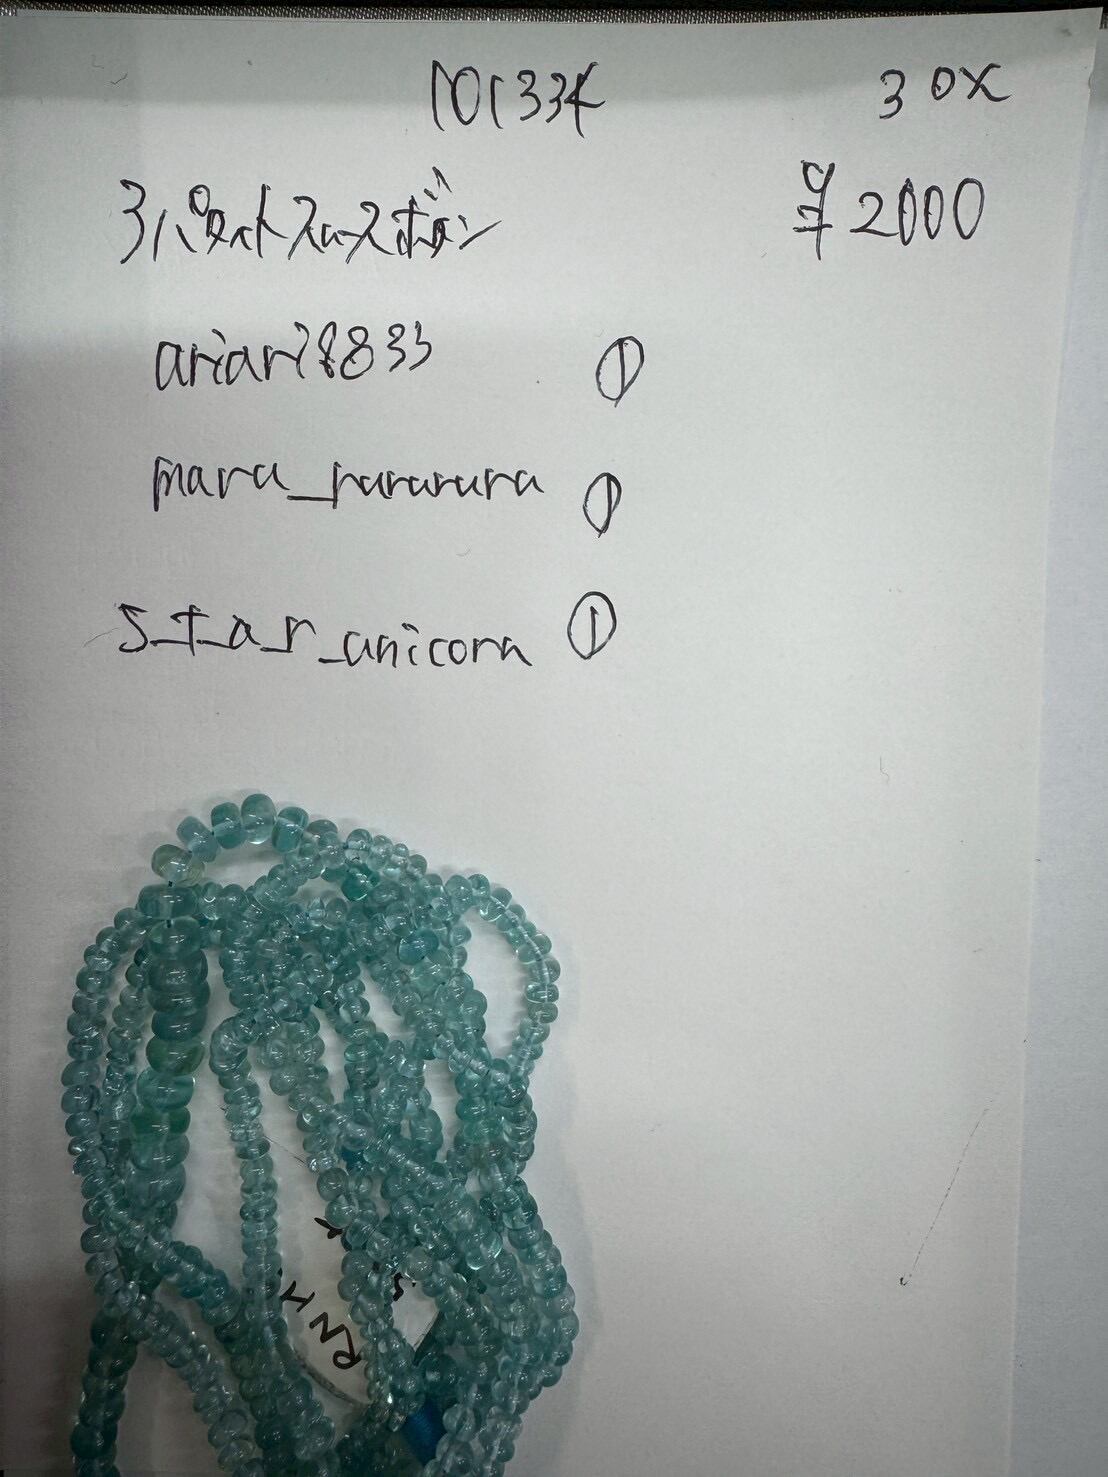 101334 30X
アパタイトスムースボタン ¥2000
ariari8833 ①
maru_rururura ①
s_t_a_r_unicorn ①
RNH